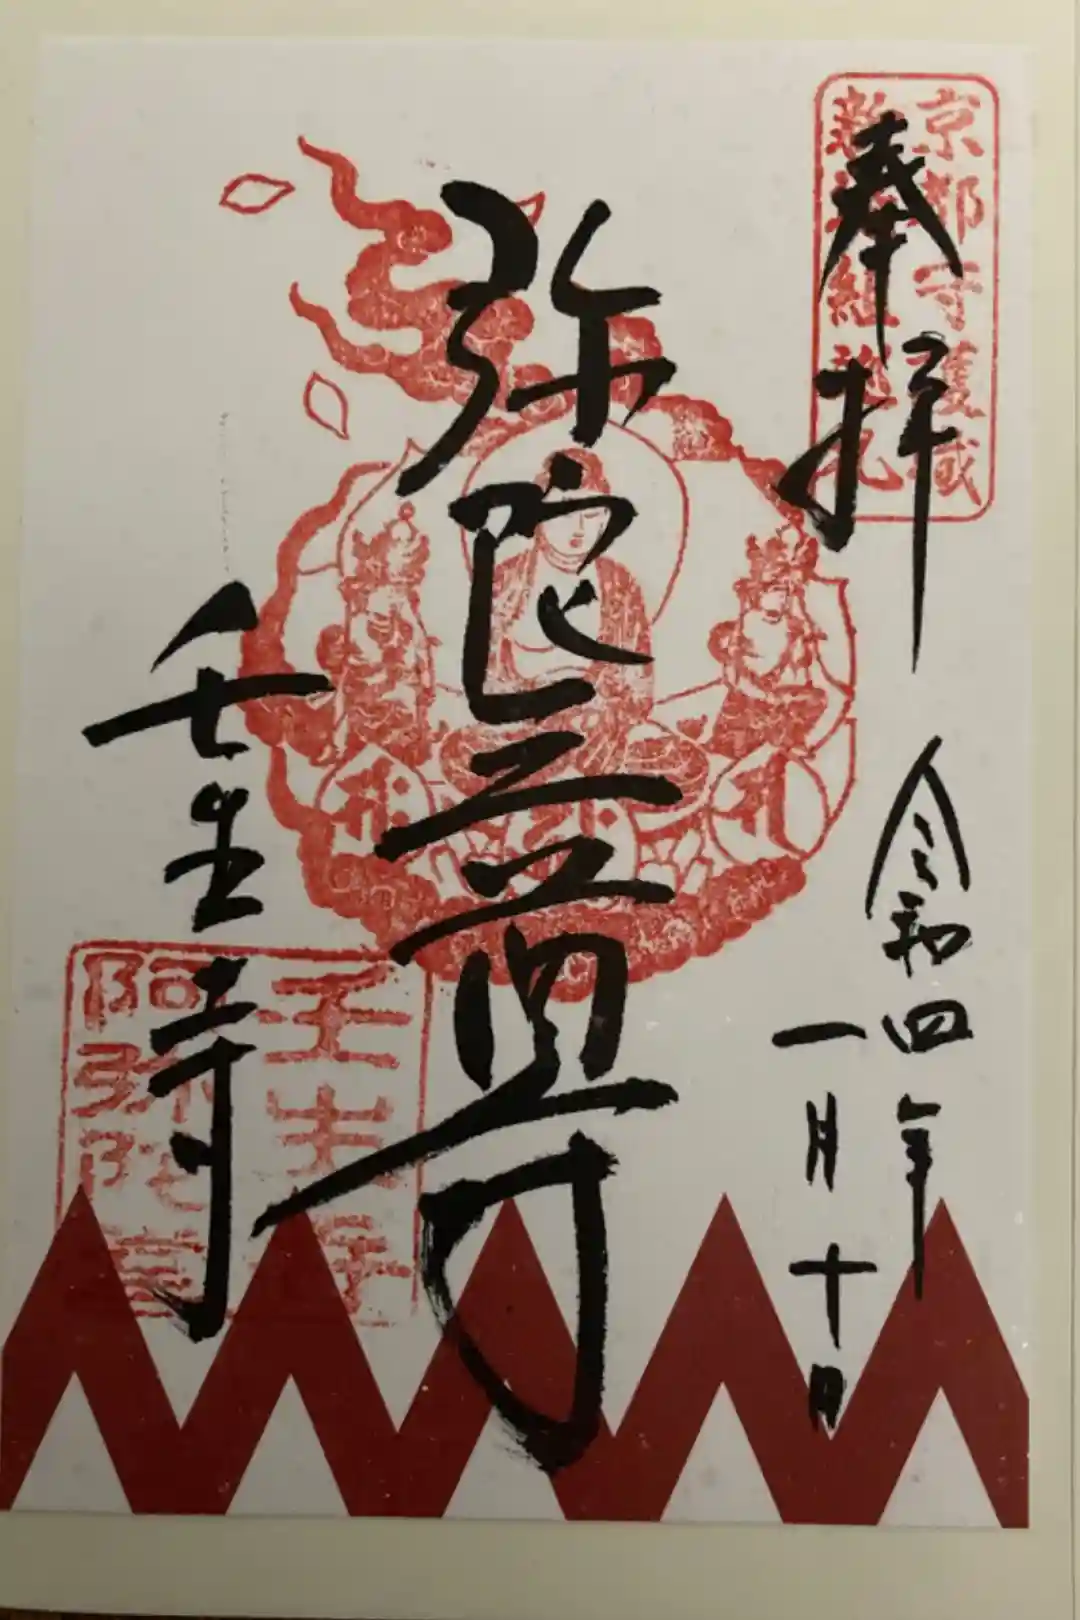 京都守護職
新選組巡礼
奉拝
令和四年
一月十日
弥陀三尊
壬生寺
壬生寺
阿弥陀堂